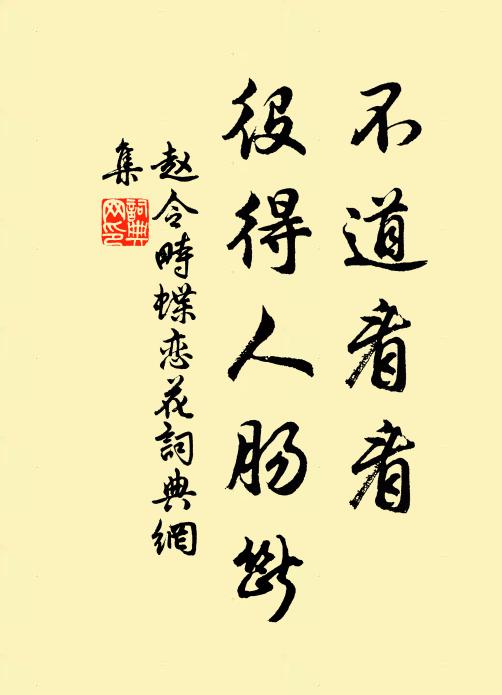 不道看看
役得人肠断
赵令畤蝶恋花詞典網
集
詞典
网印